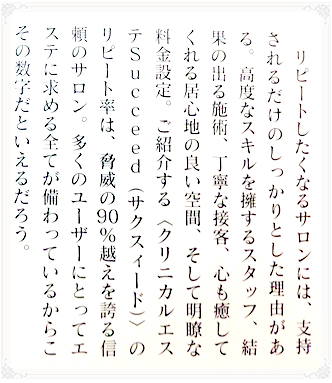 リピートしたくなるサロンには、支持
されるだけのしっかりとした理由があ
る。高度なスキルを擁するスタッフ、結
果の出る施術、丁寧な接客、心も癒して
くれる居心地の良い空間、そして明瞭な
料金設定。ご紹介する〈クリニカルエス
テSucceed（サクスィード）〉の
リピート率は、脅威の90%越えを誇る信
頼のサロン。多くのユーザーにとってエ
ステに求める全てが備わっているからこ
その数字だといえるだろう。